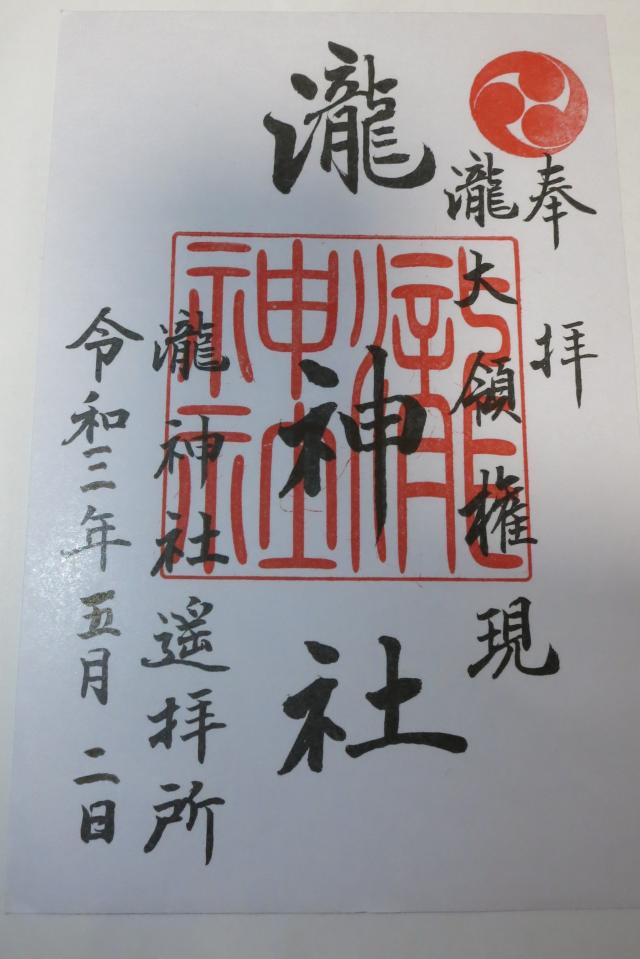 奉拝
瀧大領権現
瀧神社
瀧神社
瀧神社遥拝所
令和三年五月二日